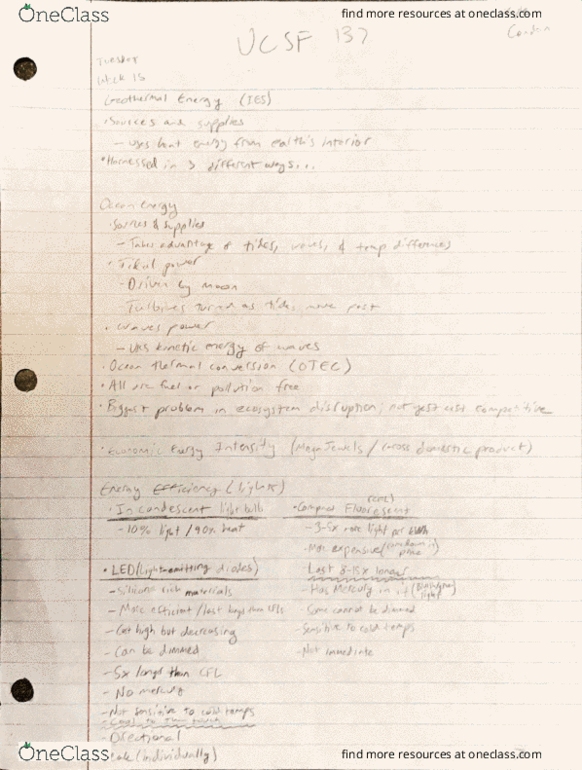 OneClass
find more resources at oneclass.com
UCSF 137
Tuesday
Week 15
Geothermal Energy (IES)
• Sources and supplies
– uses heat energy from earth's interior
• Harnessed in 3 different ways...
Ocean energy
• Sources & supplies
– Takes advantage of tides, waves, & temp differences
• Tidal power
– Driven by moon
Turbines turned as tides move past
• waves power
– uses kinetic energy of waves
• Ocean thermal conversion (OTEC)
• All are fuel or pollution free
• Biggest problem in ecosystem disruption, not yet cost competitive
• Economic Energy Intensity (MegaJewels / Gross domestic product)
Energy Efficiency (lights)
• Incandescent light bulbs
– 10% light / 90% heat
• LED (Light emitting diodes)
– Silicone rich materials
– More efficient / last longer than CFLs
– Cost high but decreasing
– Can be dimmed
– 5x longer than CFL
– No mercury
– Not sensitive to cold temps
– Directional
(individually)
• Compact Fluorescent
(CFL)
– 3-5x more light per
– More expensive
Last 8-15x longer
– Has Mercury in it
– Some cannot be dimmed
– Sensitive to cold temps
– Not immediate
OneClass
find more resources at oneclass.com